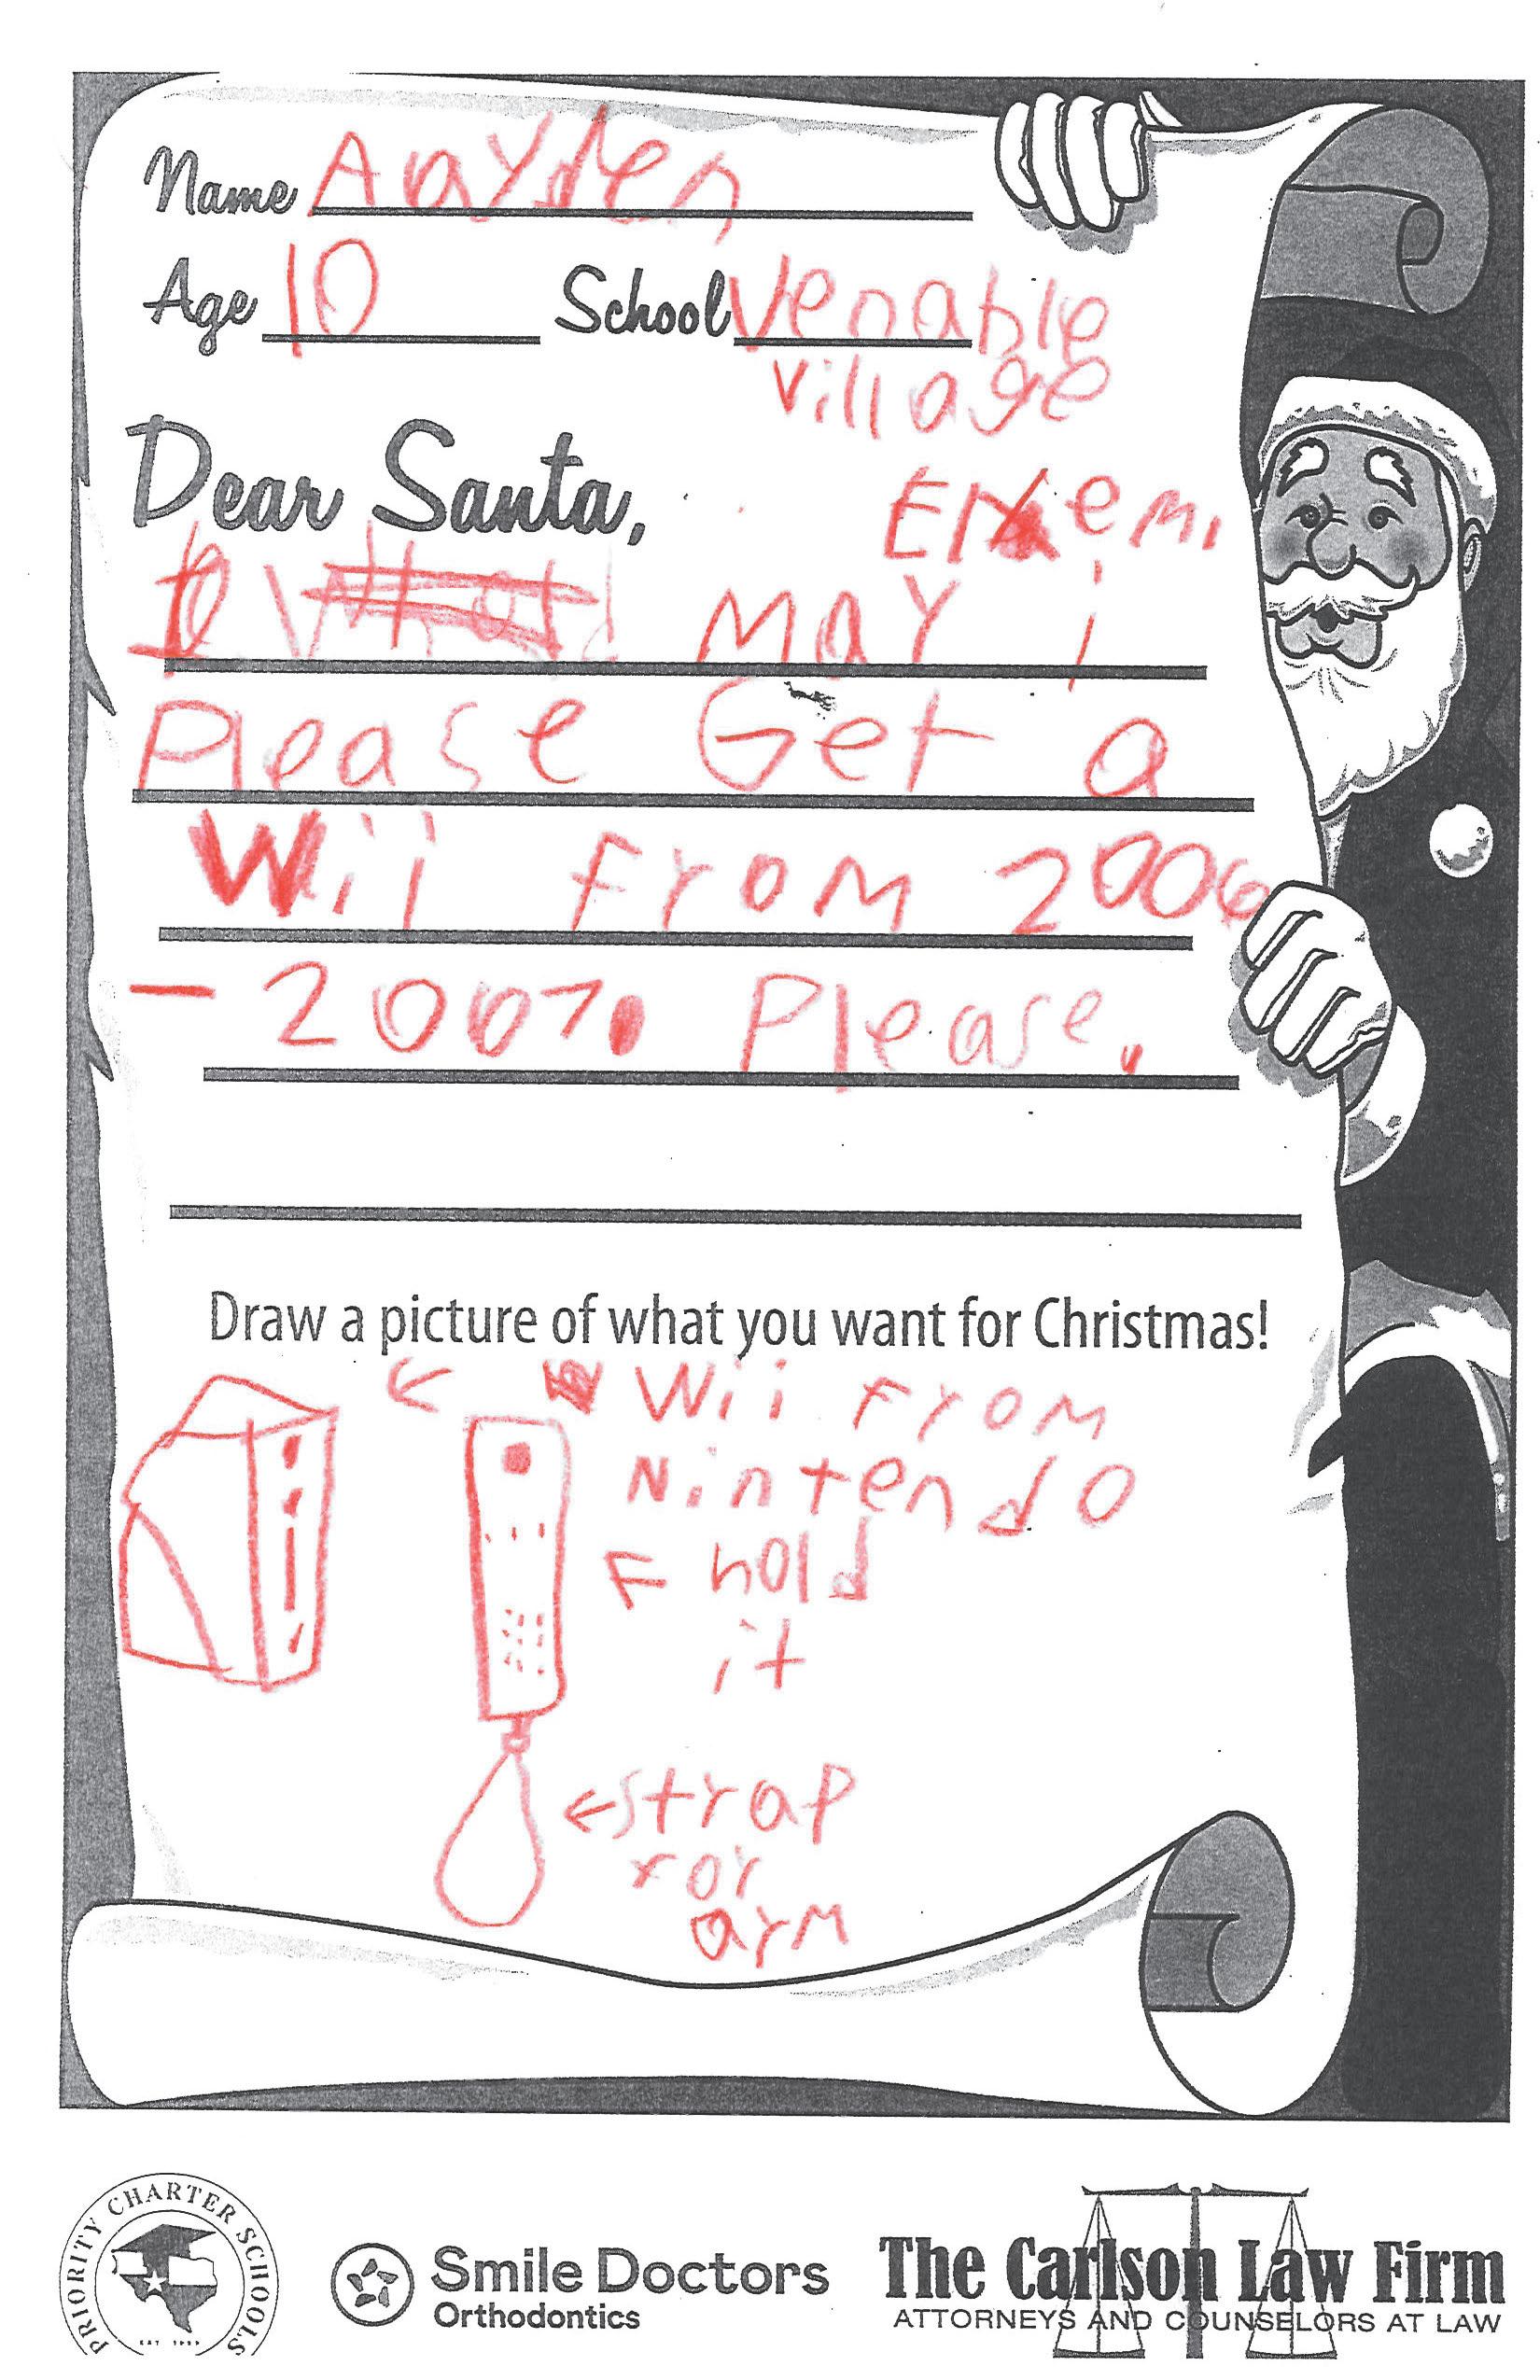 Name Aayden
Age 10 School Venable
village
Elem.
Dear Santa,
May i
Please Get a
Wii From 2006
- 2007. Please.
Draw a picture of what you want for Christmas!
← Wii From
Nintendo
← hold
it
← strap
For
arm
PRIORITY CHARTER SCHOOLS
EST 1999
Smile Doctors
Orthodontics
The Carlson Law Firm
ATTORNEYS AND COUNSELORS AT LAW